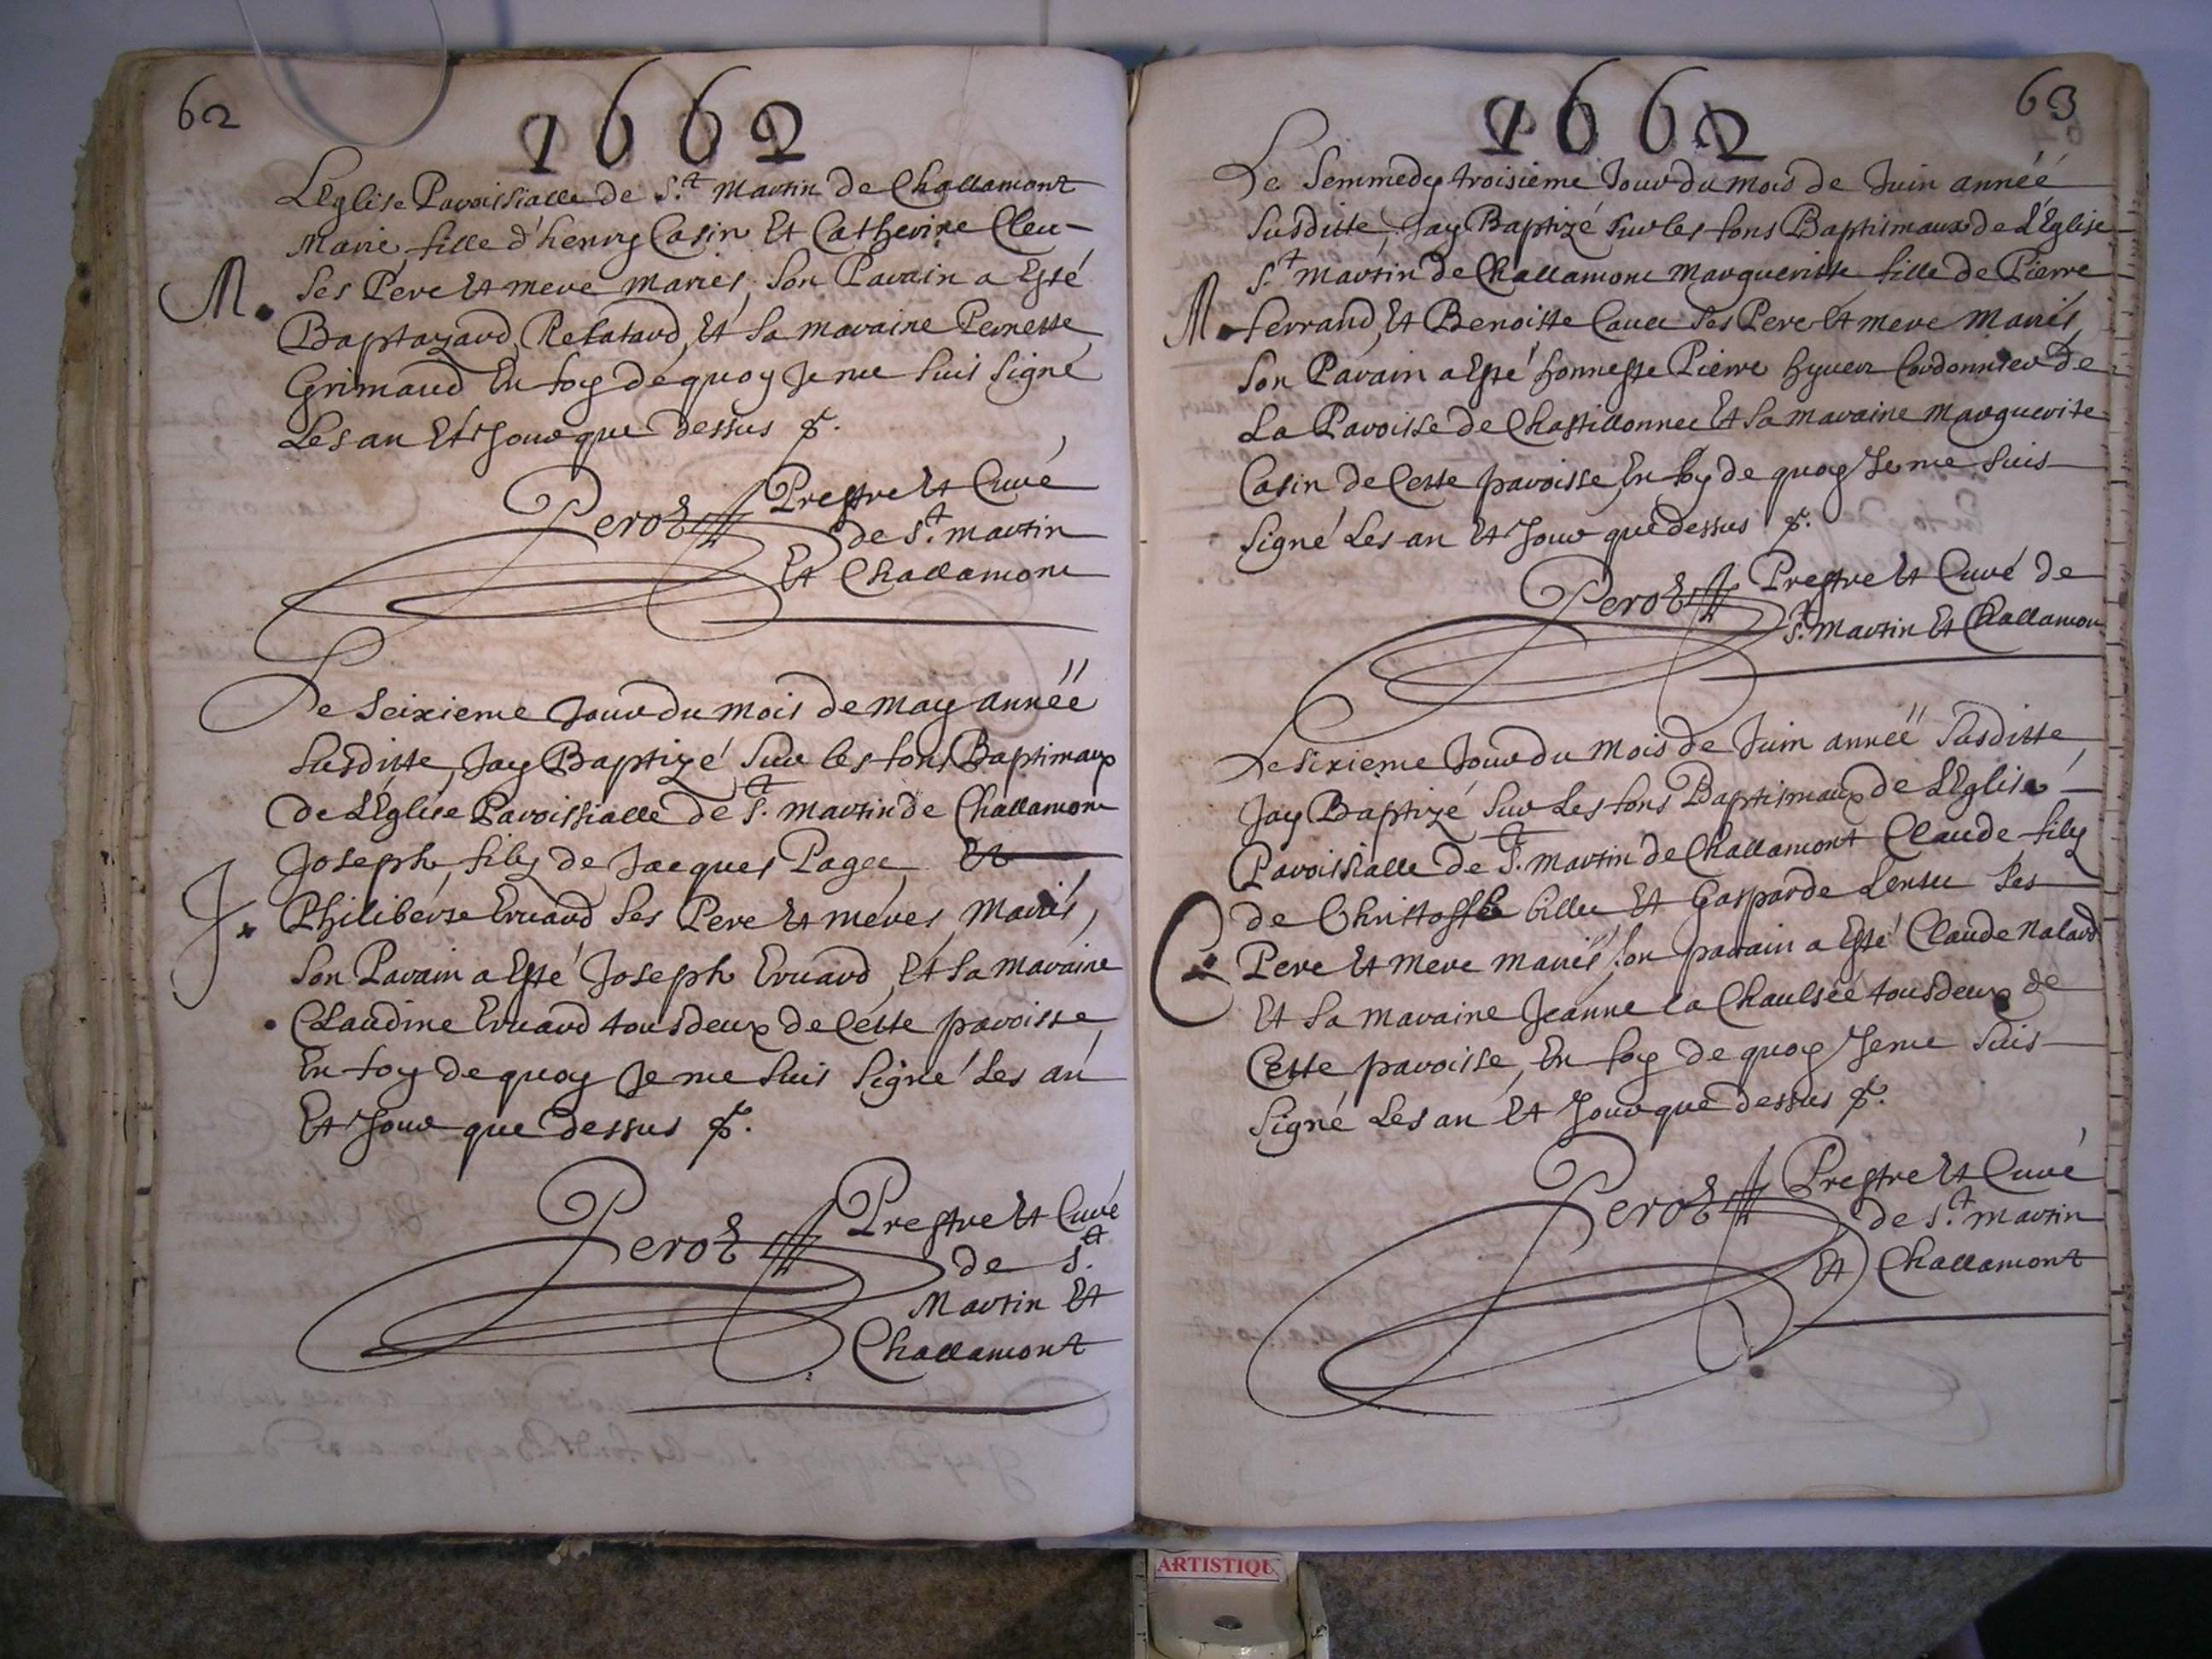 62
1662
L'Eglise Paroissialle de S.t Martin de Challamont
Marie fille d'henry Casin Et Catherine Cleu-
ses Pere Et mere mariés, son Parain a Esté
M.
Baptazard Refatard, Et sa maraine Pernette
Grimaud En foy de quoy Je me suis signé
Les an Et Jour que dessus
Peroz Prestre Et Curé
de S.t martin
Et Challamont
Le seixieme Jour du mois de may année
susditte, Jay Baptizé sur les fons Baptimaux
de L'Eglise Paroissialle de S.t martin de Challamont
Joseph, filz de Jacques Pagee, Et
J.
Philiberte Evuard ses Pere Et meres mariés,
son Parain a Esté Joseph Evuard, Et sa maraine
Claudine Evuard tous deux de Cette paroisse,
En foy de quoy Je me suis signé Les an
Et Jour que dessus
Peroz Prestre Et Curé
de S.t
Martin Et
Challamont
63
1662
Le Semmedy troisieme Jour du mois de Juin année
susditte, Jay Baptizé sur les fons Baptismaux de L'Eglise
S.t martin de Challamont Margueritte fille de Pierre
M.
ferrand, Et Benoitte ses Pere Et mere mariés,
son Parain a Esté honneste Pierre hyuer Cordonnier de
La Paroisse de Chastillonnee Et sa maraine Marguerite
Casin de Cette paroisse, En foy de quoy Je me suis
signé Les an Et Jour que dessus
Peroz Prestre Et Curé de
S.t Martin Et Challamon
Le sixieme Jour du mois de Juin année susditte,
Jay Baptizé sur Les fons Baptismaux de L'Eglise
Paroissialle de S.t martin de Challamont Claude filz
de Christoffle billee Et Gasparde Lensu ses
C.
Pere Et mere mariés, son parain a Esté Claude nalard
Et sa maraine Jeanne la Chaulsée tous deux de
Cette paroisse, En foy de quoy Je me suis
signé Les an Et Jour que dessus
Peroz Prestre Et Curé
de S.t martin
Et Challamont
ARTISTIQU